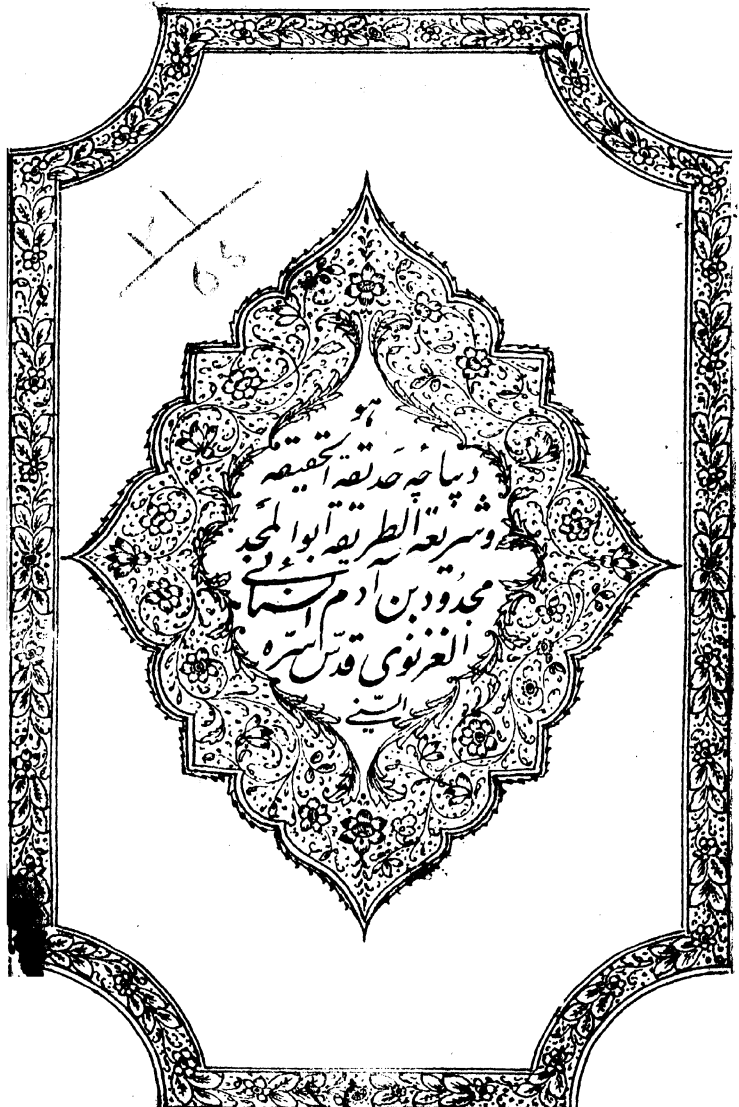 هو
دیباچه حَدیقة الحقیقه
وشریعة الطریقه ابوالمجد
مجدُود بن آدم السنائی
الغزنوی قدّس سرّه
السنی